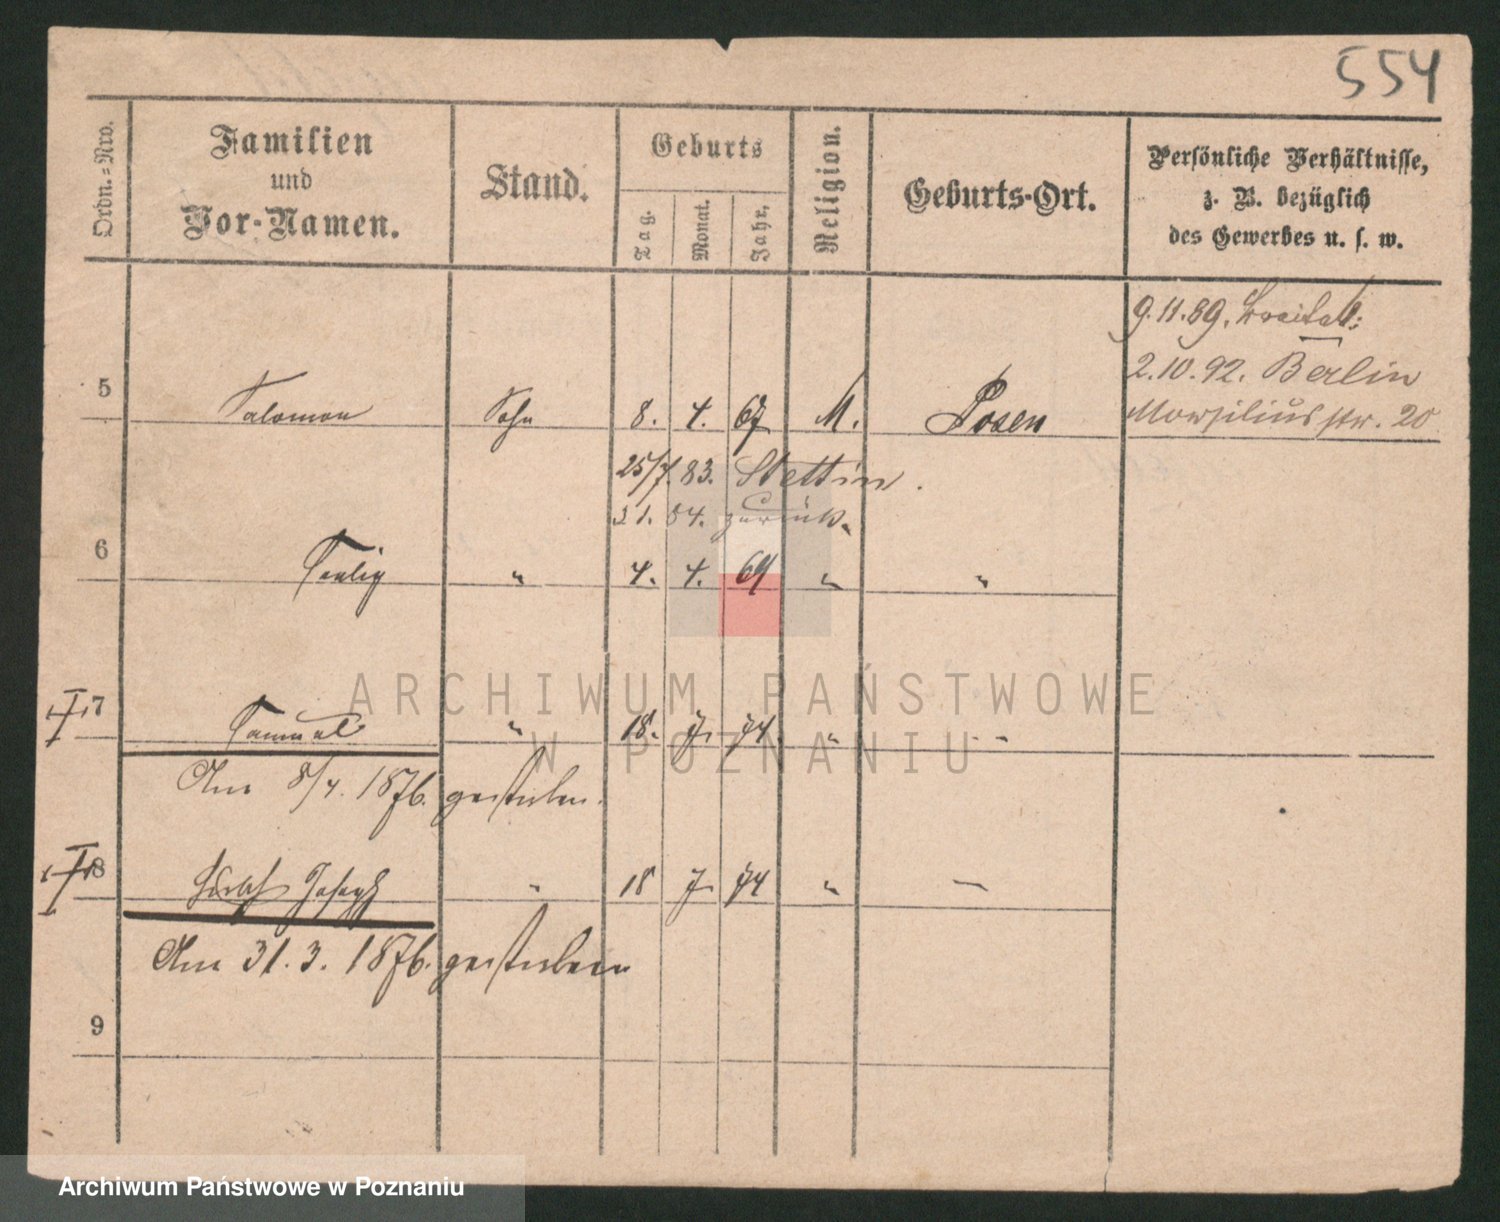 554
Ordn.=Nro.
Familien
und
Vor-Namen.
Stand.
Geburts
Tag.
Monat.
Jahr,
Religion.
Geburts-Ort.
Persönliche Verhältnisse,
z. B. bezüglich
des Gewerbes u. s. w.
9.11.89.
2.10.92. Berlin
Marsiliusstr. 20
5 Salomon Sohn 8. 4. 67 M. Posen
25/7. 83. Stettin.
84. zurück.
6 " 4. 4. 69 " "
7 Samuel " 18. 7. 74 " "
Am 8/4. 1876. gestorben.
8 Joseph " 18 7. 74 " —
Am 31. 3. 1876. gestorben
9
ARCHIWUM PAŃSTWOWE
W POZNANIU
Archiwum Państwowe w Poznaniu